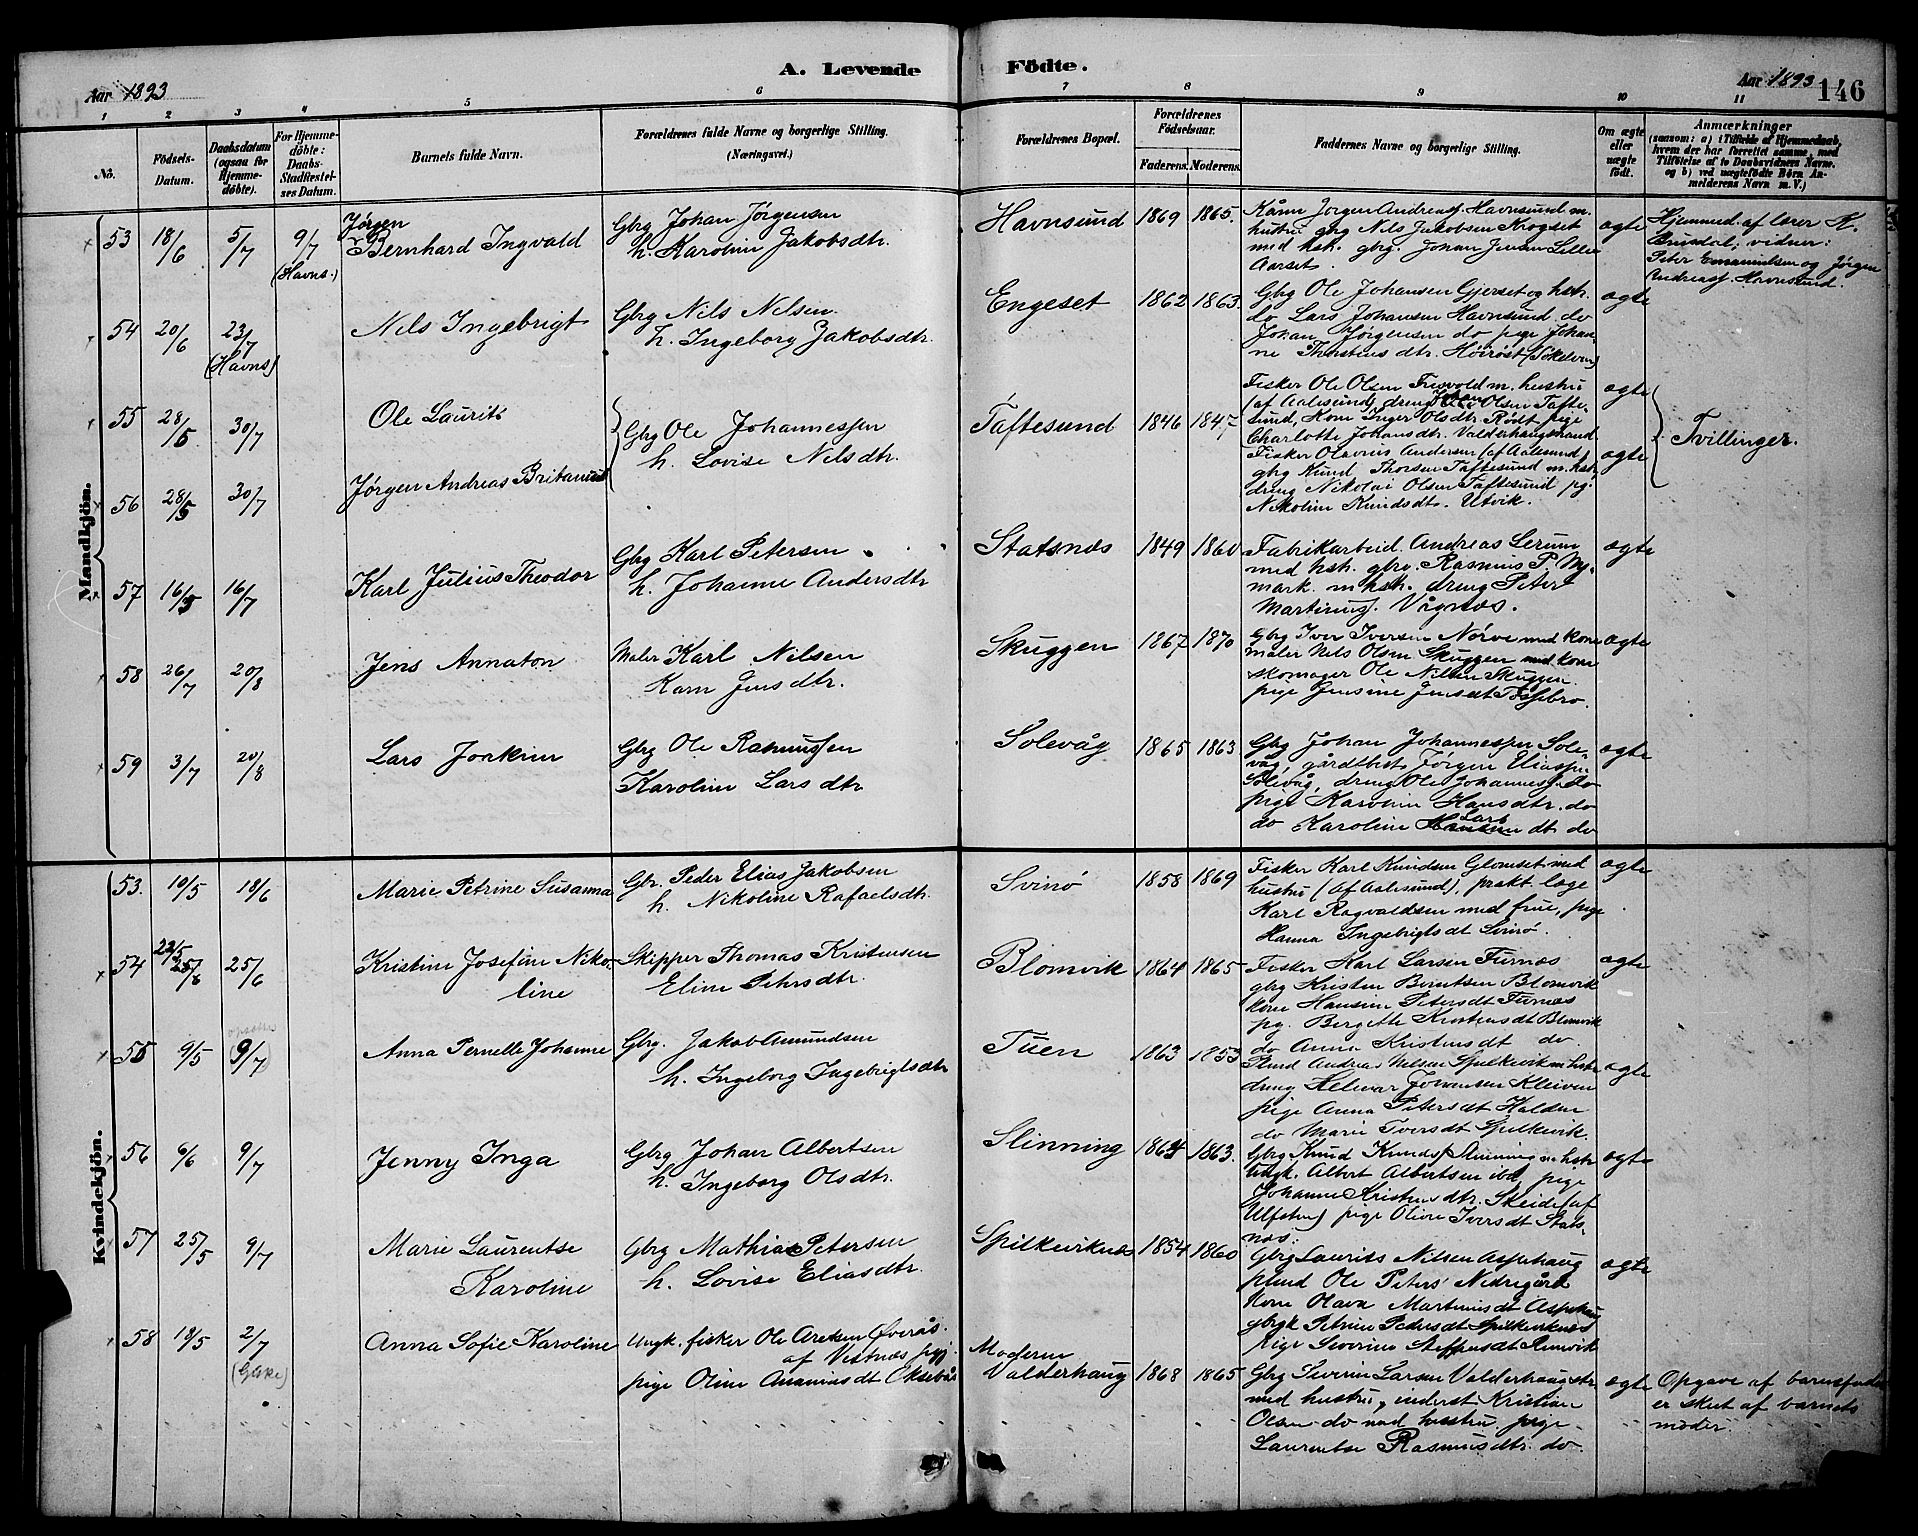 A. Levende Födte.
Aar 1893
Aar 1893
146
1 2 3 4 5 6 7 8 9 10 11
No.
Födsels-Datum.
Daabsdatum (ogsaa for Hjemme-döbte).
For Hjemme-döbte: Daabs-Stadfæstel-ses Datum.
Barnets fulde Navn.
Forældrenes fulde Navne og borgerlige Stilling. (Næringsvei.)
Forældrenes Bopæl.
Forældrenes Födselsaar.
Faderens. Moderens.
Faddernes Navne og borgerlige Stilling.
Om ægte eller uægte födt.
Anmærkninger
(saasom: a) i Tilfælde af Hjemmedaab, hvem der har forrettet samme, med Tilföielse af to Daabsvidners Navne. og b) ved uægtefödte Börn An-melderens Navn m. V.)
Mandkjön.
53 18/6 5/7 9/7 (Havns.) Jørgen Bernhard Ingvald
Gbrg Johan Jørgensen
h. Karoline Jakobsdtr.
Havnsund 1869 1865
Kårm Jørgen Andreass. Havnsund m.
hustru gbrg Nils Jakobsen Krogset
med hsk. gbrg. Johan Jensen Lille
Aarset.
ægte
Hjemmed. af lærer K.
Brusdal, vidner:
Peter Emanuelsen og Jørgen
Andreass. Havnsund.
54 20/6 23/7 (Havns) Nils Ingebrigt
Gbrg Nils Nilsen
h. Ingeborg Jakobsdtr.
Engeset 1862 1863.
Gbrg Ole Johansen Gjerset og hsk.
do Lars Johansen Havnsund do
Johan Jørgensen do pige Johan-
ne Thostensdtr. Høirøst (Søkelven)
ægte
55 28/5 30/7 Ole Laurits
Gbrg Ole Johannessen
h. Lovise Nilsdtr.
Taftesund 1846 1847
Fisker Ole Olsen Fresvold m. hustru
(af Aalesund), dreng Johan Olsen Tafte-
sund, Kone Inger Olsdtr. Rødt, pige
Charlotte Johansdtr. Valderhaugstrand
ægte
Tvillinger.
56 28/5 30/7 Jørgen Andreas Britanius
Fisker Olavus Andersen (af Aalesund)
gbrg Knud Thorsen Taftesund m. hsk
dreng Nikolai Olsen Taftesund pg.
Nikoline Knudsdt. Utvik.
ægte
57 16/5 16/7 Karl Julius Theodor
Gbrg Karl Petersen
h. Johanne Andersdtr
Statsnæs 1849 1860
Fabrikarbeid. Andreas Lerum
med hsk. gbrg. Rasmus P. My-
mark. m hsk. dreng Peter
Martinus. Vågnæs.
ægte
58 26/7 20/8 Jens Annaton
Maler Karl Nilsen
Karn Jensdtr.
Skuggen 1867 1870
Gbrg Iver Iversen Nørve med kone
maler Nils Olsen Skuggen med kone
skomager Ole Nilsen Skuggen
pige Jensine Jensdt Fossebro.
ægte
59 3/7 20/8 Lars Joakim
Gbrg Ole Rasmussen
Karoline Larsdtr
Solevåg 1865 1863
Gbrg Johan Johannessen Sole-
våg, gårdtbest Jørgen Eliassen
Solevåg, dreng Ole Johanness. do
pige Karoline Hansdtr. do
do Karoline Lars dt do
ægte
Kvindekjön.
53. 10/5 18/6 Marie Petrine Susanna
Gbr. Peder Elias Jakobsen
h. Nikoline Rafaelsdtr.
Svinø 1858 1869
Fisker Karl Knudsen Glomset med
hustru (af Aalesund), prakt. læge
Karl Ragvaldsen med frue, pige
Hanna Ingebrigtsdt Svinø.
ægte
54 22/5 25/6 Kristine Josefine Niko-
line
Skipper Thomas Kristensen
Eline Petersdtr.
Blomvik 1864 1865
Fisker Karl Larsen Furnæs
gbrg Kristen Berntsen Blomvik
kone Hansine Petersdt Furnæs
pg. Bergette Kristensdt Blomvik
do Anna Kristensdt do.
ægte
55 9/5 (9/7) Anna Pernelle Johanne
Gbrg. Jakob Amundsen
h. Ingeborg Ingebrigtsdtr
Tuen 1863 1853
Plmd Andreas Nilsen Spilkevik m hsk
dreng Helmar Johansen Kleiven
pige Anna Petersdt Holden
do Marie Iversdt Spilkevik.
ægte
56 6/6 9/7 Jenny Inga
Gbrg Johan Albertsen
h. Ingeborg Olsdtr.
Slinning 1864 1863.
Gbrg Knud Knuds. Slinning m hsk
ungk. Albert Albertsen ibd, pige
Johanne Kristensdtr. Skeide (af
Ulfsten) pige Oline Iversdt Stats-
næs.
ægte
57 25/5 9/7 Marie Laurentse
Karoline
Gbrg Mathias Petersen
h. Lovise Eliasdtr.
Spilkeviknæs 1854 1860
Gbrg Laurits Nilsen Aspehaug
plmd Ole Peters' Nedregård
Kone Olava Martinusdt Aspehaug
gbrgk Petrine Pedersdt Spilkeviknæs
Pige Severine Steffensdt Remvik
ægte
58 18/5 2/7 (Giske) Anna Sofie Karoline
Ungk. fisker Ole Aretsen Øverås
af Vestnæs pgj.
pige Oline Ananiasdt Oksebås
Moderen
Valderhaug 1868 1865
Gbrg Severin Larsen Valderhaugstr
med hustru, inderst Kristian
Olsen do med hustru, pige
Laurentse Rasmusdtr. do.
ægte
Opgave af barnefader
er skut af barnets
moder.